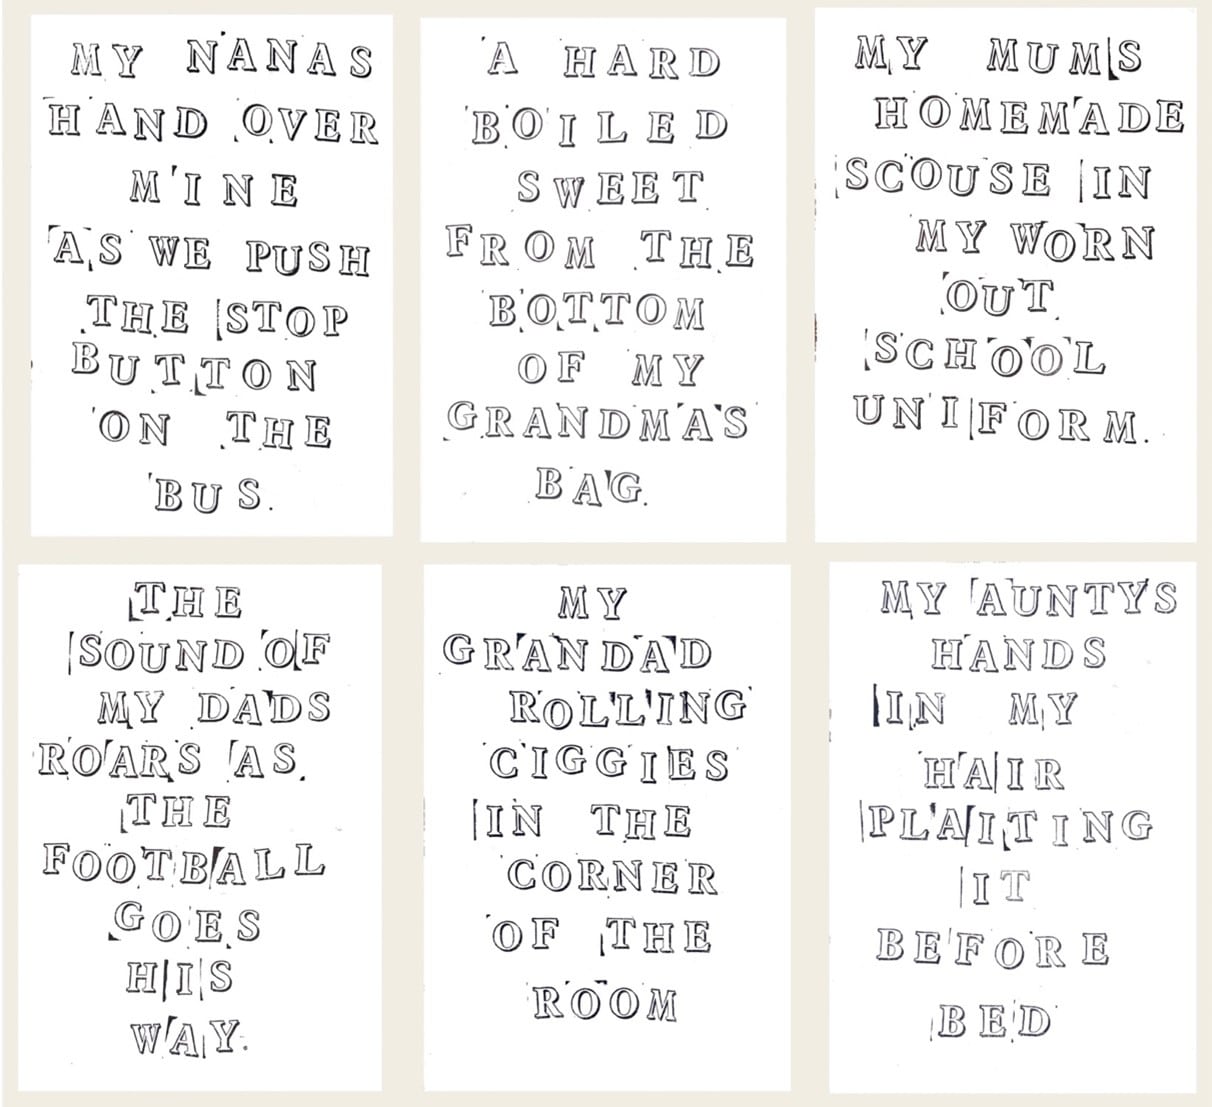 MY NANAS
HAND OVER
MINE
AS WE PUSH
THE STOP
BUTTON
ON THE
BUS.
A HARD
BOILED
SWEET
FROM THE
BOTTOM
OF MY
GRANDMAS
BAG.
MY MUMS
HOMEMADE
SCOUSE IN
MY WORN
OUT
SCHOOL
UNIFORM.
THE
SOUND OF
MY DADS
ROARS AS
THE
FOOTBALL
GOES
HIS
WAY.
MY
GRANDAD
ROLLING
CIGGIES
IN THE
CORNER
OF THE
ROOM
MY AUNTYS
HANDS
IN MY
HAIR
PLAITING
IT
BEFORE
BED